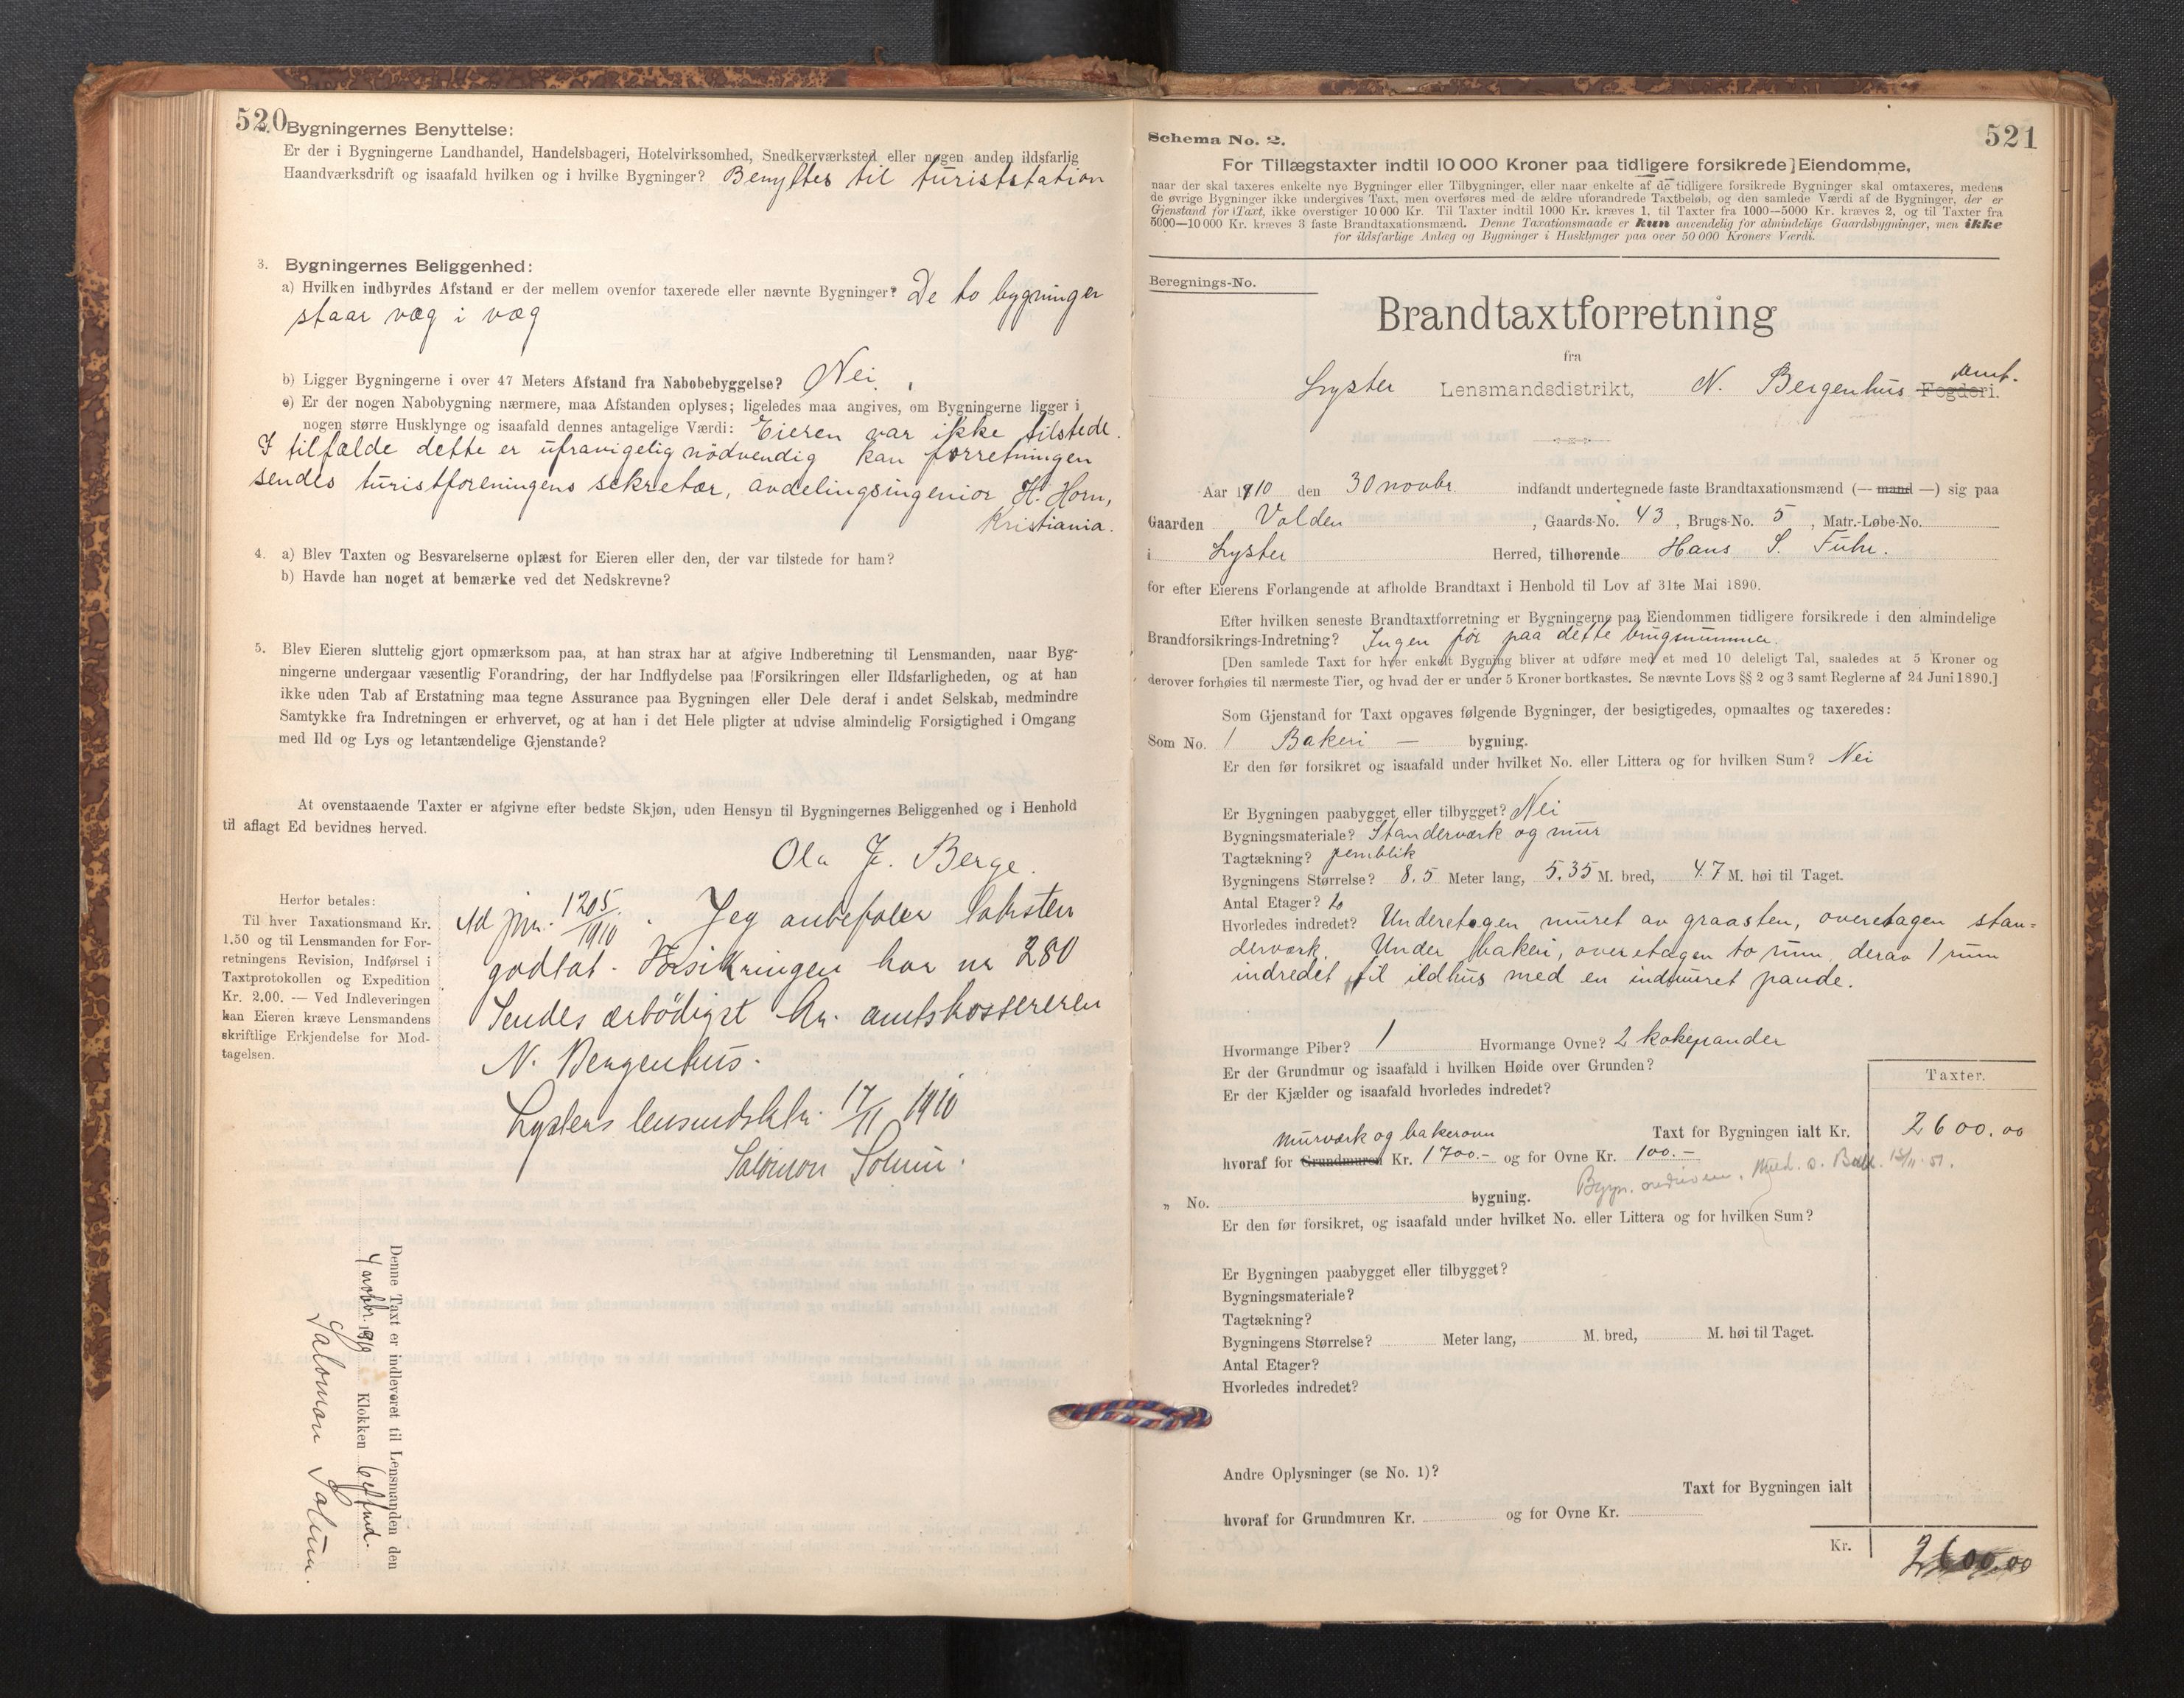 520
Bygningernes Benyttelse:
Er der i Bygningerne Landhandel, Handelsbageri, Hotelvirksomhed, Snedkerværksted eller nogen anden ildsfarlig
Haandværksdrift og isaafald hvilken og i hvilke Bygninger? Benyttes til turiststation
3. Bygningernes Beliggenhed:
a) Hvilken indbyrdes Afstand er der mellem ovenfor taxerede eller nævnte Bygninger? De to bygninger
staar væg i væg
b) Ligger Bygningerne i over 47 Meters Afstand fra Nabobebyggelse? Nei.
c) Er der nogen Nabobygning nærmere, maa Afstanden oplyses; ligeledes maa angives, om Bygningerne ligger i
nogen større Husklynge og isaafald dennes antagelige Værdi: Eieren var ikke tilstede.
I tilfælde dette er ufravigelig nödvendig kan forretningen
sendes turistforeningens sekretær, avdelingsingeniør H. Horn,
Kristiania.
4. a) Blev Taxten og Besvarelserne oplæst for Eieren eller den, der var tilstede for ham?
b) Havde han noget at bemærke ved det Nedskrevne?
5. Blev Eieren sluttelig gjort opmærksom paa, at han strax har at afgive Indberetning til Lensmanden, naar Byg-
ningerne undergaar væsentlig Forandring, der har Indflydelse paa Forsikringen eller Ildsfarligheden, og at han
ikke uden Tab af Erstatning maa tegne Assurance paa Bygningen eller Dele deraf i andet Selskab, medmindre
Samtykke fra Indretningen er erhvervet, og at han i det Hele pligter at udvise almindelig Forsigtighed i Omgang
med Ild og Lys og letantændelige Gjenstande?
At ovenstaaende Taxter er afgivne efter bedste Skjøn, uden Hensyn til Bygningernes Beliggenhed og i Henhold
til aflagt Ed bevidnes herved.
Ola J. Berge.
Herfor betales:
Til hver Taxationsmand Kr.
1.50 og til Lensmanden for For-
retningens Revision, Indførsel i
Taxtprotokollen og Expedition
Kr. 2.00. — Ved Indleveringen
kan Eieren kræve Lensmandens
skriftlige Erkjendelse for Mod-
tagelsen.
Ad jnr. 1205/1910. Jeg anbefaler taksten
godtat. Forsikringen har nr 280
Sendes ærbödigst hr. amtskassereren
N. Bergenhus.
Lysters lensmdsktr. 17/11 1910
Salomon Solum.
Denne Taxt er indleveret til Lensmanden den
4 novbr. 1910 Klokken 6 eftmd.
Salomon Solum.
521
Schema No. 2.
For Tillægstaxter indtil 10 000 Kroner paa tidligere forsikrede Eiendomme,
naar der skal taxeres enkelte nye Bygninger eller Tilbygninger, eller naar enkelte af de tidligere forsikrede Bygninger skal omtaxeres, medens
de øvrige Bygninger ikke undergives Taxt, men overføres med de ældre uforandrede Taxtbeløb, og den samlede Værdi af de Bygninger, der er
Gjenstand for Taxt, ikke overstiger 10 000 Kr. Til Taxter indtil 1000 Kr. kræves 1, til Taxter fra 1000—5000 Kr. kræves 2, og til Taxter fra
5000—10 000 Kr. kræves 3 faste Brandtaxationsmænd. Denne Taxationsmaade er kun anvendelig for almindelige Gaardsbygninger, men ikke
for ildsfarlige Anlæg og Bygninger i Husklynger paa over 50 000 Kroners Værdi.
Beregnings-No.
Brandtaxtforretning
fra
Lyster Lensmandsdistrikt, N. Bergenhus Fogderi. amt.
Aar 1910 den 30 novbr. indfandt undertegnede faste Brandtaxationsmænd (— mand —) sig paa
Gaarden Volden, Gaards-No. 43, Brugs-No. 5, Matr.-Løbe-No.
i Lyster Herred, tilhørende Hans S. Fuhr.
for efter Eierens Forlangende at afholde Brandtaxt i Henhold til Lov af 31te Mai 1890.
Efter hvilken seneste Brandtaxtforretning er Bygningerne paa Eiendommen tidligere forsikrede i den almindelige
Brandforsikrings-Indretning? Ingen før paa dette brugsnummer.
[Den samlede Taxt for hver enkelt Bygning bliver at udføre med et med 10 deleligt Tal, saaledes at 5 Kroner og
derover forhøies til nærmeste Tier, og hvad der er under 5 Kroner bortkastes. Se nævnte Lovs §§ 2 og 3 samt Reglerne af 24 Juni 1890.]
Som Gjenstand for Taxt opgaves følgende Bygninger, der besigtigedes, opmaaltes og taxeredes:
Som No. 1 Bakeri — bygning.
Er den før forsikret og isaafald under hvilket No. eller Littera og for hvilken Sum? Nei
Er Bygningen paabygget eller tilbygget? Nei
Bygningsmateriale? Standerværk og mur
Tagtækning? jernblik
Bygningens Størrelse? 8,5 Meter lang, 5,35 M. bred, 4.7 M. høi til Taget.
Antal Etager? to
Hvorledes indredet? Underetagen muret av graasten, overetagen stan-
derværk. Under bakeri, overetagen to rum, derav 1 rum
indredet til ildhus med en indmuret pande.
Hvormange Piber? 1 Hvormange Ovne? 2 kokepander
Er der Grundmur og isaafald i hvilken Høide over Grunden?
Er der Kjælder og isaafald hvorledes indredet?
Taxter.
Taxt for Bygningen ialt Kr. 2600.00
murværk og bakerovn
hvoraf for Grundmuren Kr. 1700.- og for Ovne Kr. 100.-
15/11. 51.
„ No. bygning.
Er den før forsikret, og isaafald under hvilket No. eller Littera og for hvilken Sum?
Er Bygningen paabygget eller tilbygget?
Bygningsmateriale?
Tagtækning?
Bygningens Størrelse? Meter lang, M. bred, M. høi til Taget.
Antal Etager?
Hvorledes indredet?
Andre Oplysninger (se No. 1)?
Taxt for Bygningen ialt
hvoraf for Grundmuren Kr. og for Ovne Kr.
Kr. 2600.00